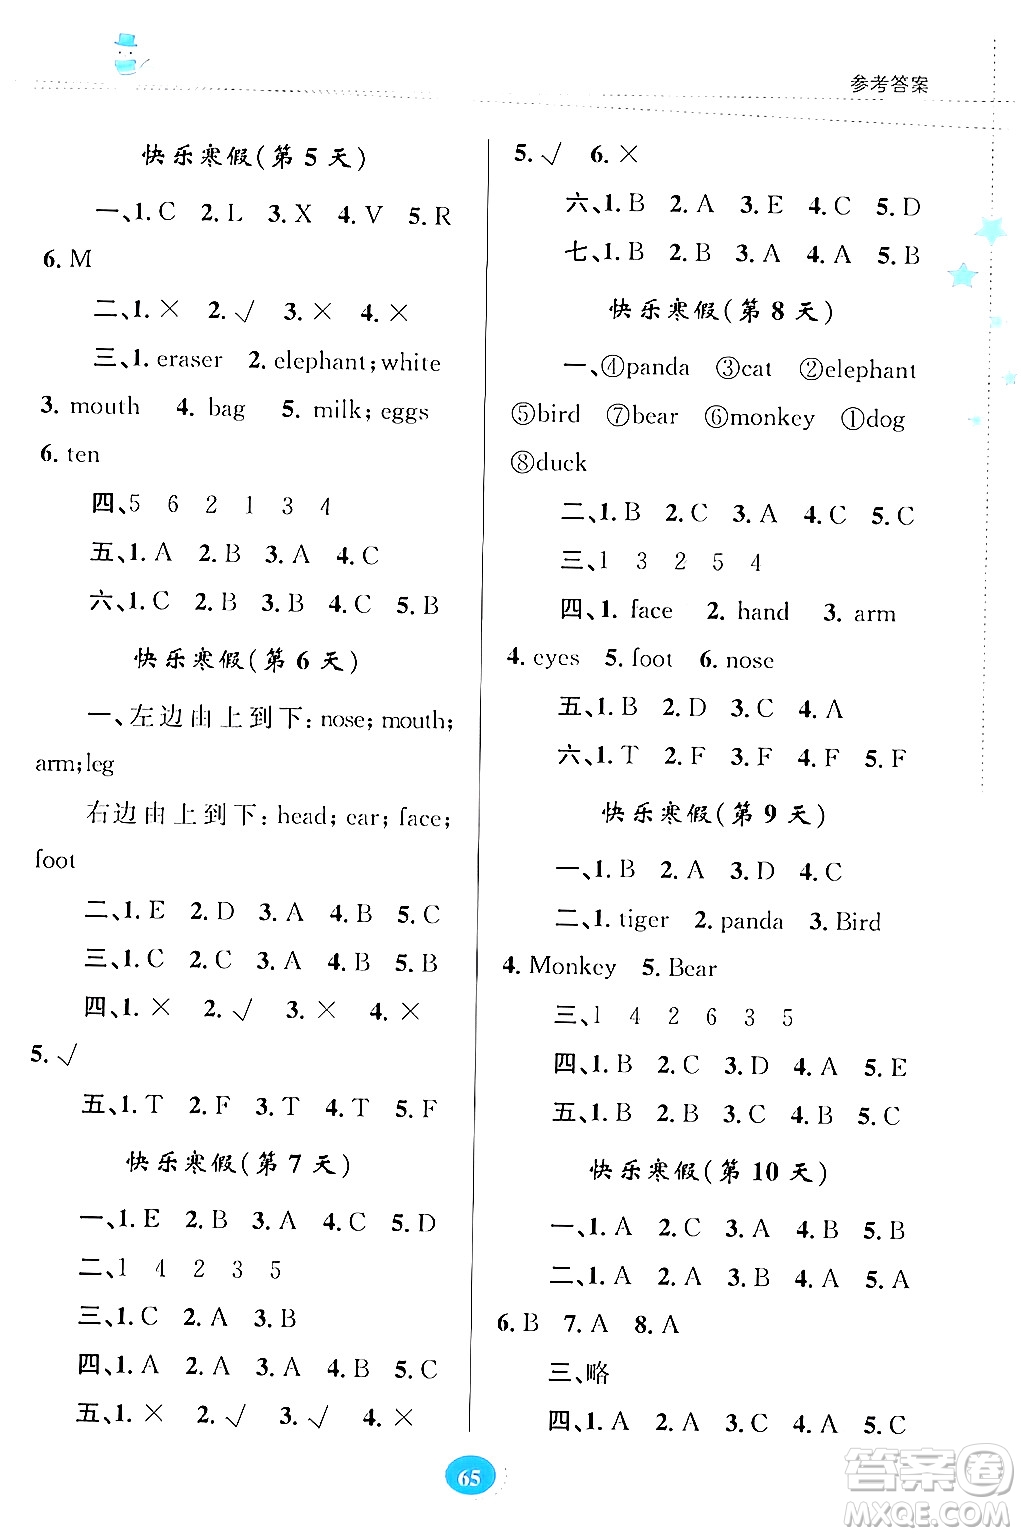 参考答案
快乐寒假(第5天)
一、1. C 2. L 3. X 4. V 5. R
6. M
二、1. × 2. √ 3. × 4. ×
三、1. eraser 2. elephant;white
3. mouth 4. bag 5. milk; eggs
6. ten
四、5 6 2 1 3 4
五、1. A 2. B 3. A 4. C
六、1. C 2. B 3. B 4. C 5. B
快乐寒假(第6天)
一、左边由上到下:nose;mouth;
arm;leg
右边由上到下:head;ear;face;
foot
二、1. E 2. D 3. A 4. B 5. C
三、1. C 2. C 3. A 4. B 5. B
四、1. × 2. √ 3. × 4. ×
5. √
五、1. T 2. F 3. T 4. T 5. F
快乐寒假(第7天)
一、1. E 2. B 3. A 4. C 5. D
二、1 4 2 3 5
三、1. C 2. A 3. B
四、1. A 2. A 3. A 4. B 5. C
五、1. × 2. √ 3. √ 4. ×
5. √ 6. ×
六、1. B 2. A 3. E 4. C 5. D
七、1. B 2. B 3. A 4. A 5. B
快乐寒假(第8天)
一、④panda ③cat ②elephant
⑤bird ⑦bear ⑥monkey ①dog
⑧duck
二、1. B 2. C 3. A 4. C 5. C
三、1 3 2 5 4
四、1. face 2. hand 3. arm
4. eyes 5. foot 6. nose
五、1. B 2. D 3. C 4. A
六、1. T 2. F 3. F 4. F 5. F
快乐寒假(第9天)
一、1. B 2. A 3. D 4. C
二、1. tiger 2. panda 3. Bird
4. Monkey 5. Bear
三、1 4 2 6 3 5
四、1. B 2. C 3. D 4. A 5. E
五、1. B 2. B 3. C 4. B 5. C
快乐寒假(第10天)
一、1. A 2. C 3. A 4. B 5. B
二、1. A 2. A 3. B 4. A 5. A
6. B 7. A 8. A
三、略
四、1. A 2. A 3. C 4. A 5. C
65
答案圈
MXQE.COM